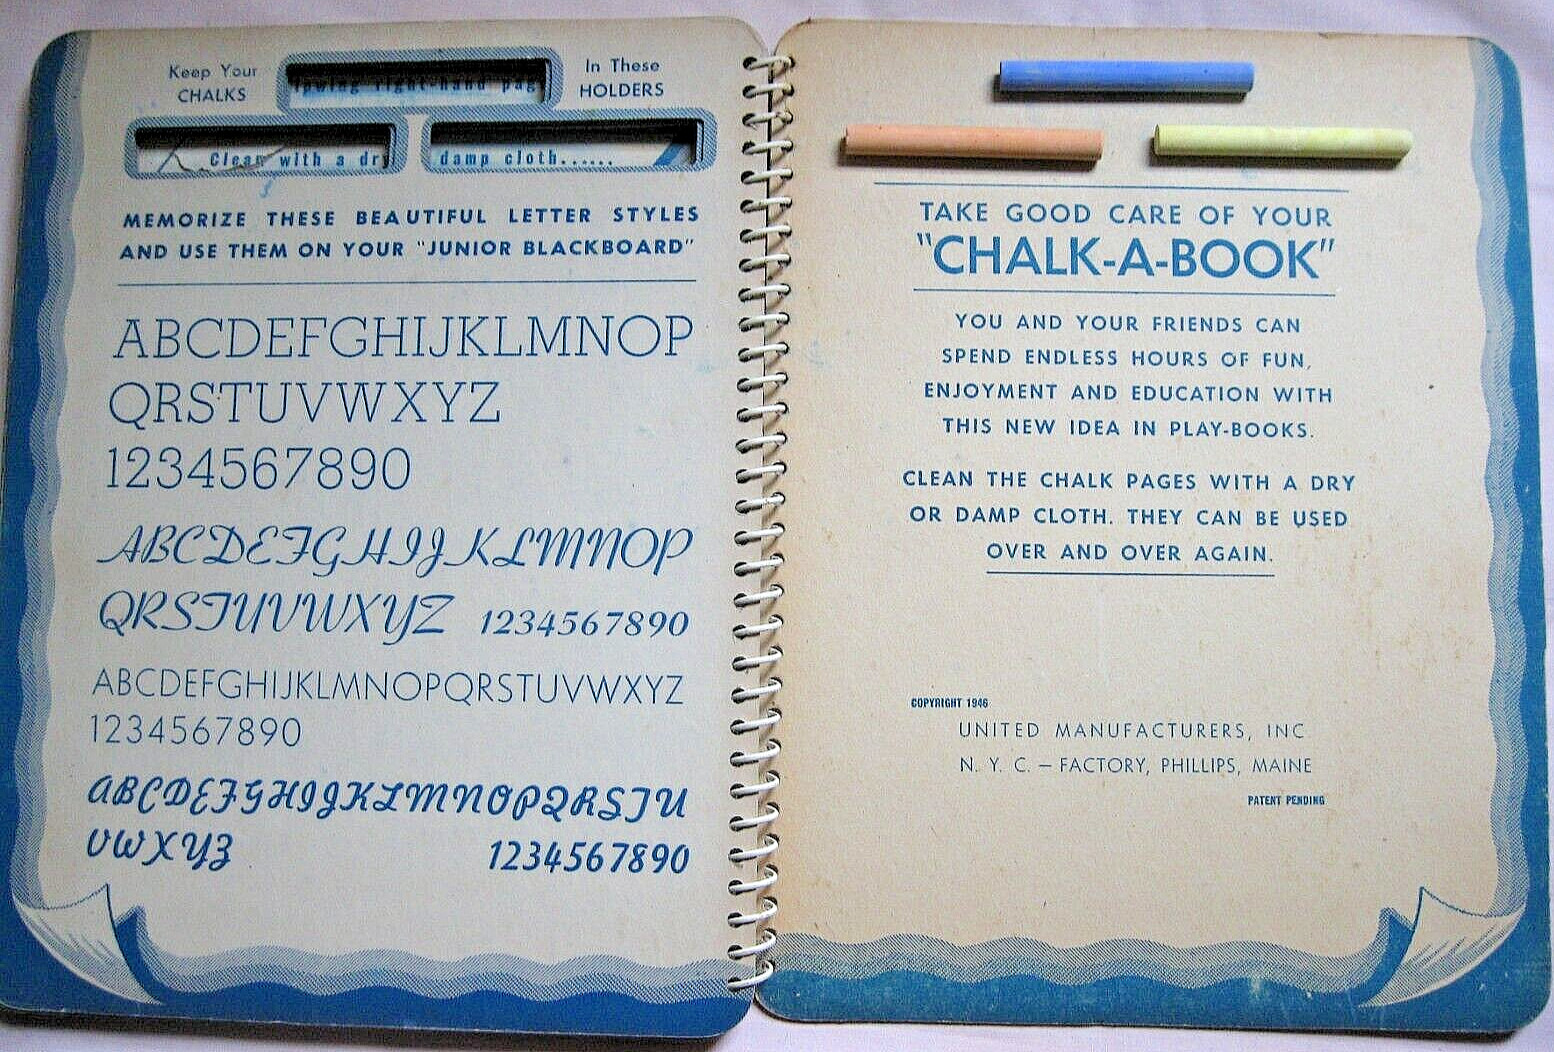 Keep Your
CHALKS
In These
HOLDERS
right-hand
Clean with a dry
damp cloth......
MEMORIZE THESE BEAUTIFUL LETTER STYLES
AND USE THEM ON YOUR "JUNIOR BLACKBOARD"
ABCDEFGHIJKLMNOP
QRSTUVWXYZ
1234567890
ABCDEFGHIJKLMNOP
QRSTUVWXYZ 1234567890
ABCDEFGHIJKLMNOPQRSTUVWXYZ
1234567890
ABCDEFGHIJKLMNOPQRSTU
VWXYZ 1234567890
TAKE GOOD CARE OF YOUR
"CHALK-A-BOOK"
YOU AND YOUR FRIENDS CAN
SPEND ENDLESS HOURS OF FUN,
ENJOYMENT AND EDUCATION WITH
THIS NEW IDEA IN PLAY-BOOKS.
CLEAN THE CHALK PAGES WITH A DRY
OR DAMP CLOTH. THEY CAN BE USED
OVER AND OVER AGAIN.
COPYRIGHT 1946
UNITED MANUFACTURERS, INC
N. Y. C. — FACTORY, PHILLIPS, MAINE
PATENT PENDING